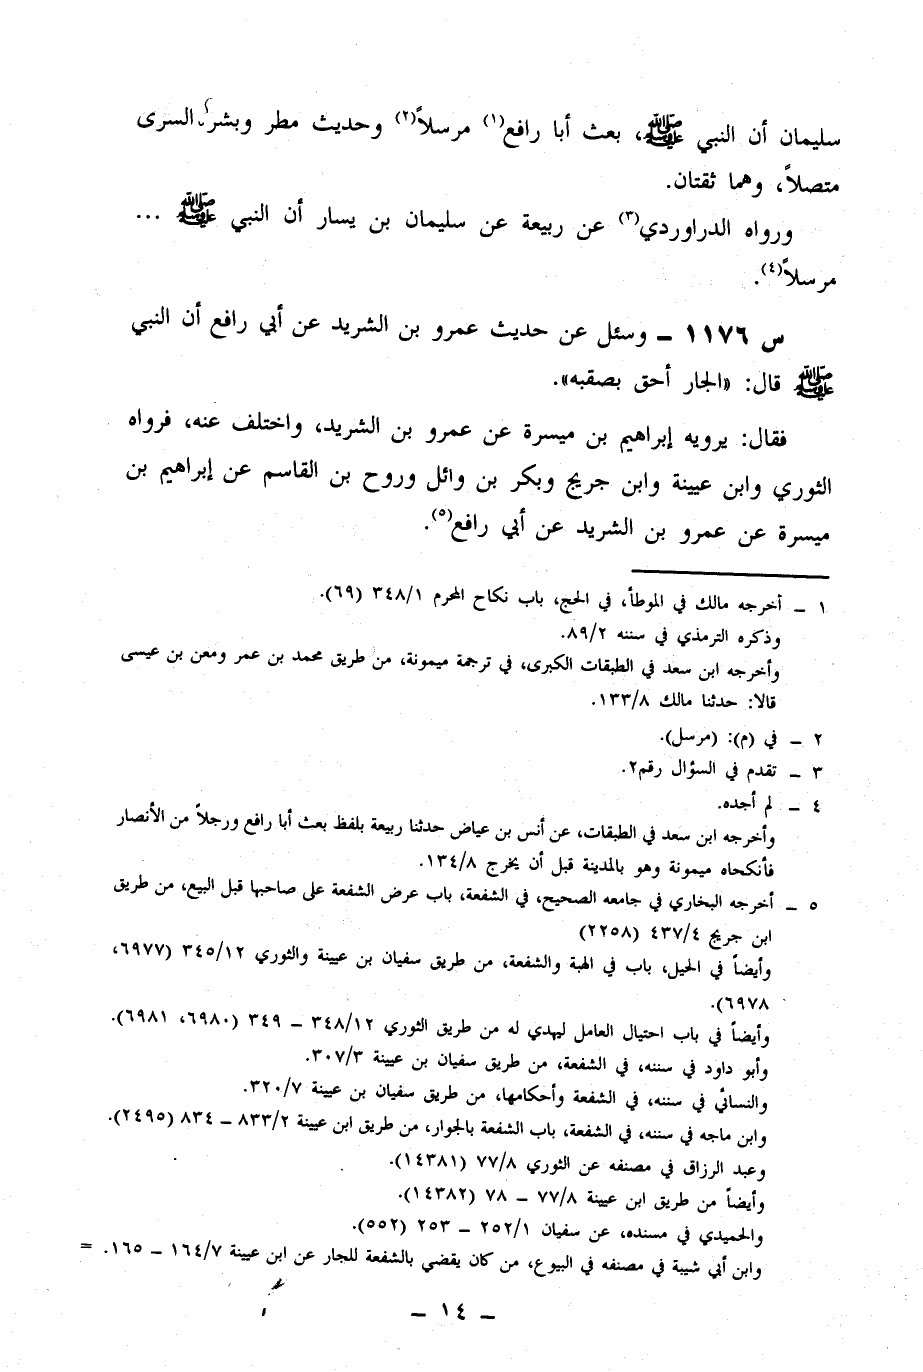 سليمان أن النبي ﷺ، بعث أبا رافع(١) مرسلاً(٢) وحديث مطر وبشر السرى
متصلاً، وهما ثقتان.
ورواه الدراوردي(٣) عن ربيعة عن سليمان بن يسار أن النبي ﷺ ...
مرسلاً(٤).
س ١١٧٦ ـ وسئل عن حديث عمرو بن الشريد عن أبي رافع أن النبي
ﷺ قال: «الجار أحق بصقبه».
فقال: يرويه إبراهيم بن ميسرة عن عمرو بن الشريد، واختلف عنه، فرواه
الثوري وابن عيينة وابن جريج وبكر بن وائل وروح بن القاسم عن إبراهيم بن
ميسرة عن عمرو بن الشريد عن أبي رافع(٥).
١ ـ أخرجه مالك في الموطأ، في الحج، باب نكاح المحرم ٣٤٨/١ (٦٩).
وذكره الترمذي في سننه ٨٩/٢.
وأخرجه ابن سعد في الطبقات الكبرى، في ترجمة ميمونة، من طريق محمد بن عمر ومعن بن عيسى
قالا: حدثنا مالك ١٣٣/٨.
٢ ـ في (م): (مرسل).
٣ ـ تقدم في السؤال رقم٢.
٤ ـ لم أجده.
وأخرجه ابن سعد في الطبقات، عن أنس بن عياض حدثنا ربيعة بلفظ بعث أبا رافع ورجلاً من الأنصار
فأنكحاه ميمونة وهو بالمدينة قبل أن يخرج ١٣٤/٨.
٥ ـ أخرجه البخاري في جامعه الصحيح، في الشفعة، باب عرض الشفعة على صاحبها قبل البيع، من طريق
ابن جريج ٤٣٧/٤ (٢٢٥٨)
وأيضاً في الحيل، باب في الهبة والشفعة، من طريق سفيان بن عيينة والثوري ٣٤٥/١٢ (٦٩٧٧،
٦٩٧٨).
وأيضاً في باب احتيال العامل ليهدي له من طريق الثوري ٣٤٨/١٢ ـ ٣٤٩ (٦٩٨٠، ٦٩٨١).
وأبو داود في سننه، في الشفعة، من طريق سفيان بن عيينة ٣٠٧/٣.
والنسائي في سننه، في الشفعة وأحكامها، من طريق سفيان بن عيينة ٣٢٠/٧.
وابن ماجه في سننه، في الشفعة، باب الشفعة بالجوار، من طريق ابن عيينة ٨٣٣/٢ ـ ٨٣٤ (٢٤٩٥).
وعبد الرزاق في مصنفه عن الثوري ٧٧/٨ (١٤٣٨١).
وأيضاً من طريق ابن عيينة ٧٧/٨ ـ ٧٨ (١٤٣٨٢).
والحميدي في مسنده، عن سفيان ٢٥٢/١ ـ ٢٥٣ (٥٥٢).
وابن أبي شيبة في مصنفه في البيوع، من كان يقضي بالشفعة للجار عن ابن عيينة ١٦٤/٧ ـ ١٦٥. =
ـ ١٤ ـ